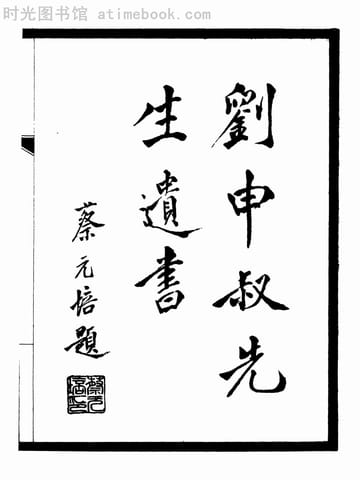 时光图书馆 atimebook.com
劉申叔先
生遺書
蔡元培題
蔡元培印